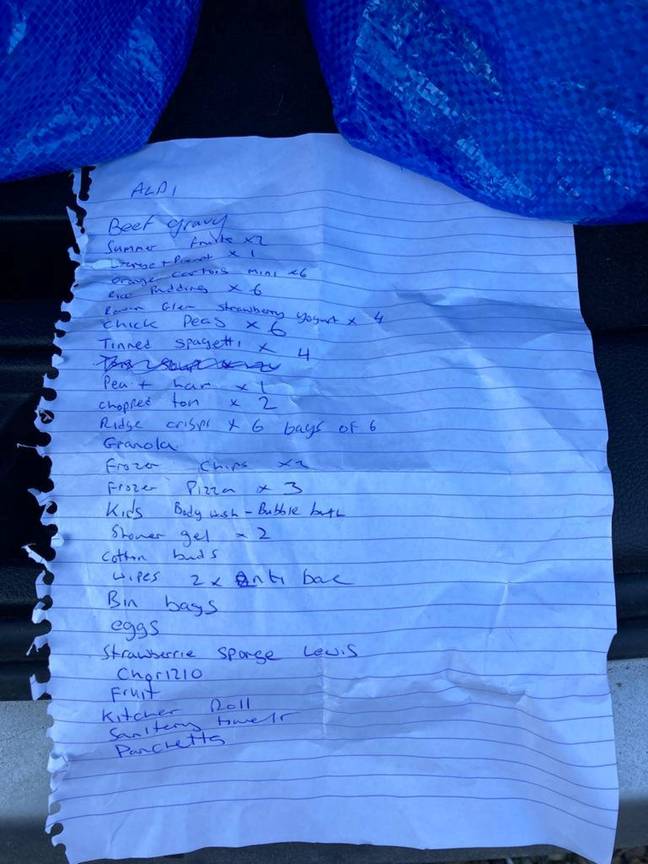 ALDI
Beef gravy
Summer fruits x2
x 1
orange cartons mini x6
Rice Puddings x 6
Glen strawberry yogurt x 4
chick Peas x 6
Tinned spagetti x 4
Pea + ham x 1
chopped tom x 2
Ridge crisps x 6 bags of 6
Granola
Frozen chips x2
Frozen Pizza x 3
Kids Body wash - Bubble bath
Shower gel x 2
cotton buds
wipes 2 x anti bac
Bin bags
eggs
Strawberrie sponge Lewis
Chorizo
Fruit
Kitchen Roll
Sanitery towels
Panchetta